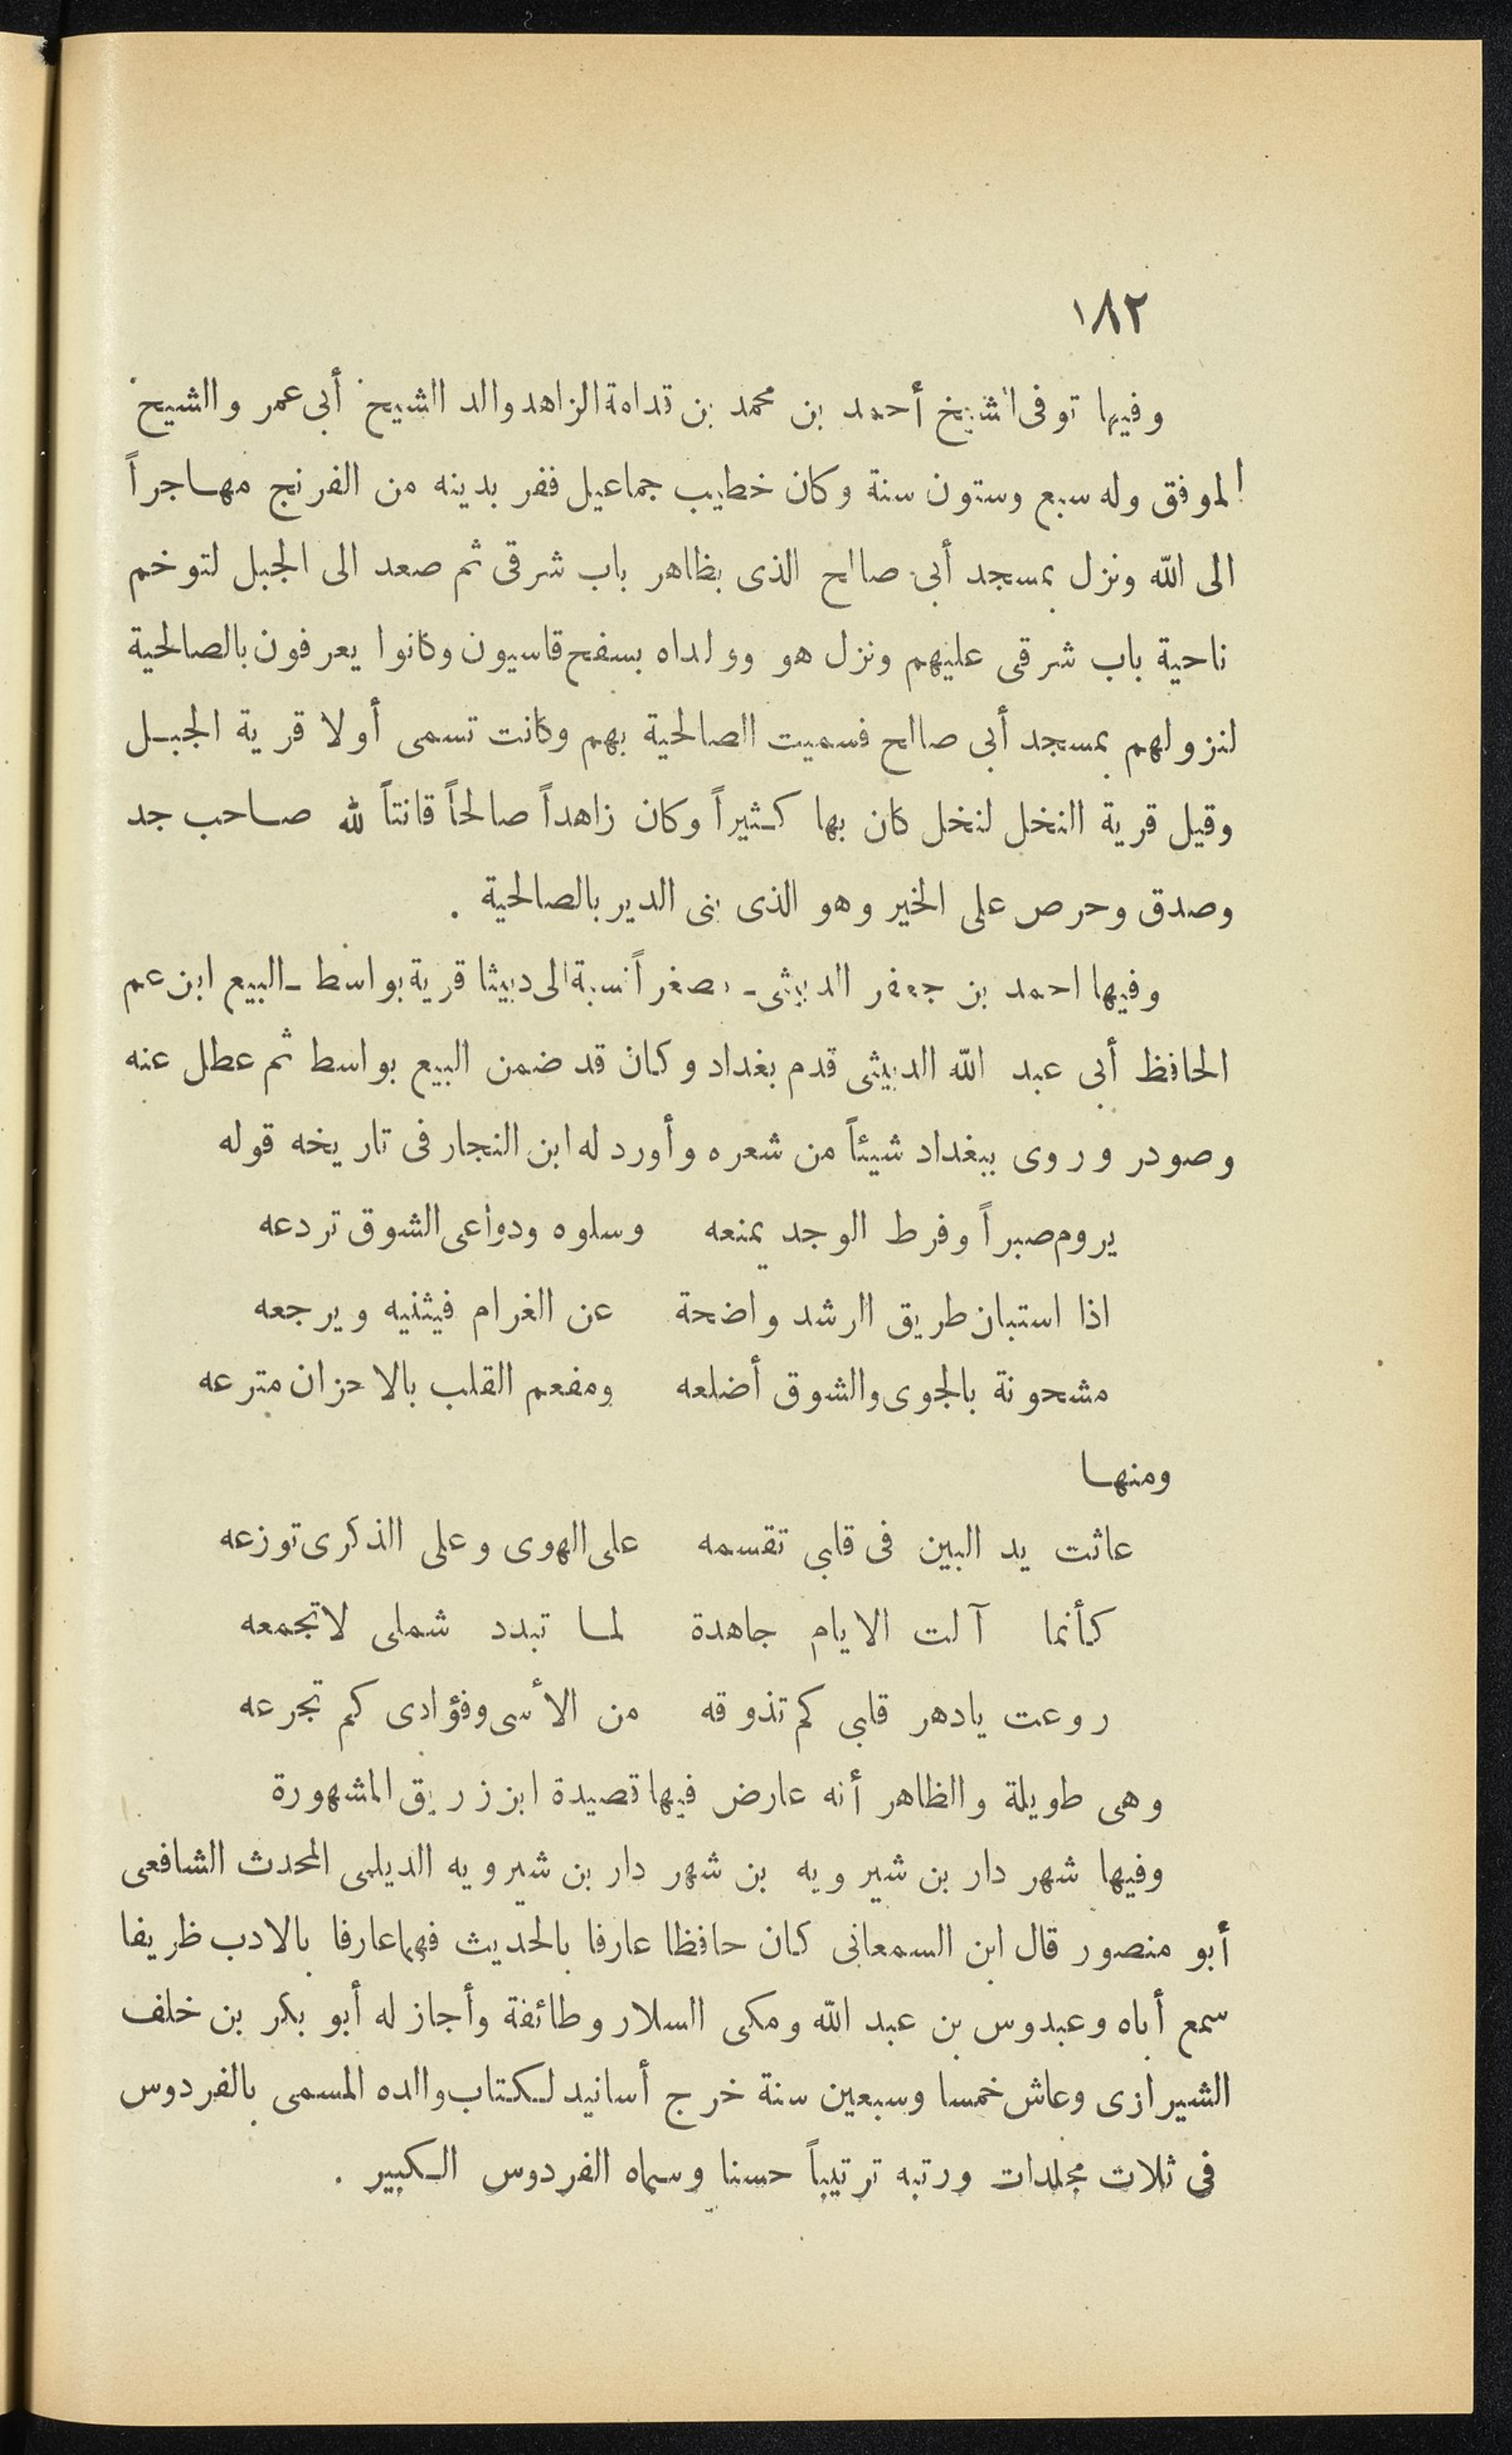 ١٨٢
وفيها توفى الشيخ أحمد بن محمد بن قدامة الزاهد والد الشيخ أبى عمر والشيخ
الموفق وله سبع وستون سنة وكان خطيب جماعيل ففر بدينه من الفرنج مهاجراً
الى الله ونزل بمسجد أبى صالح الذى بظاهر باب شرقى ثم صعد الى الجبل لتوخم
ناحية باب شرقى عليهم ونزل هو وولداه بسفح قاسيون وكانوا يعرفون بالصالحية
لنزولهم بمسجد أبى صالح فسميت الصالحية بهم وكانت تسمى أولا قرية الجبل
وقيل قرية النخل لنخل كان بها كثيراً وكان زاهداً صالحاً قانتاً لله صاحب جد
وصدق وحرص على الخير وهو الذى بنى الدير بالصالحية .
وفيها احمد بن جعفر الدبيثى ـ مصغراً نسبة الى دبيثا قرية بواسط ـ البيع ابن عم
الحافظ أبى عبد الله الدبيثى قدم بغداد وكان قد ضمن البيع بواسط ثم عطل عنه
وصودر وروى ببغداد شيئاً من شعره وأورد له ابن النجار فى تاريخه قوله
يروم صبراً وفرط الوجد يمنعه وسلوه ودواعى الشوق تردعه
اذا استبان طريق الرشد واضحة عن الغرام فيثنيه ويرجعه
مشحونة بالجوى والشوق أضلعه ومفعم القلب بالاحزان مترعه
ومنها
عاثت يد البين فى قلبى تقسمه على الهوى وعلى الذكرى توزعه
كأنما آلت الايام جاهدة لما تبدد شملى لاتجمعه
روعت يادهر قلبى كم تذوقه من الأسى وفؤادى كم تجرعه
وهى طويلة والظاهر أنه عارض فيها قصيدة ابن زريق المشهورة
وفيها شهر دار بن شيرويه بن شهر دار بن شيرويه الديلمى المحدث الشافعى
أبو منصور قال ابن السمعانى كان حافظا عارفا بالحديث فهما عارفا بالادب ظريفا
سمع أباه وعبدوس بن عبد الله ومكى السلار وطائفة وأجاز له أبو بكر بن خلف
الشيرازى وعاش خمسا وسبعين سنة خرج أسانيد لكتاب والده المسمى بالفردوس
فى ثلاث مجلدات ورتبه ترتيباً حسنا وسماه الفردوس الكبير .